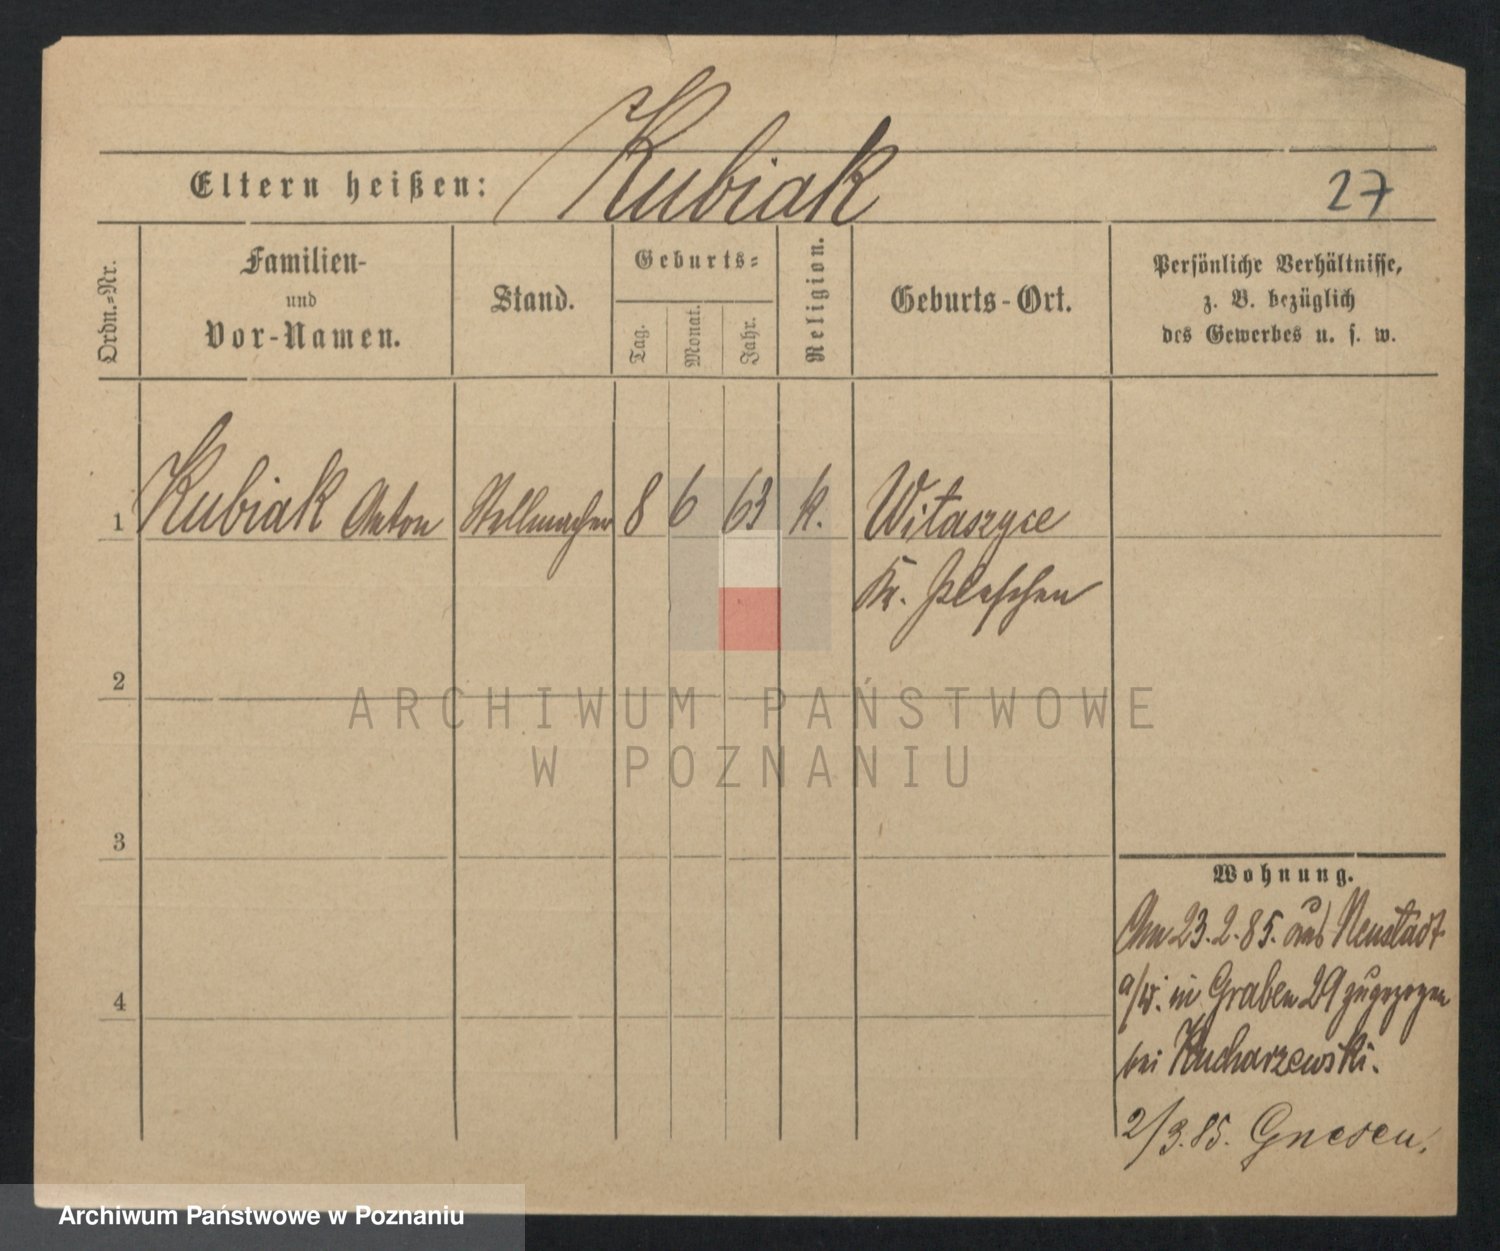 Eltern heißen: Kubiak 27
Ordn.-Nr.
Familien-
und
Vor-Namen.
Stand.
Geburts-
Tag.
Monat.
Jahr.
Religion.
Geburts-Ort.
Persönliche Verhältnisse,
z. B. bezüglich
des Gewerbes u. s. w.
1 Kubiak Anton Stellmacher 8 6 63 k. Witaszyce
Kr. Pleschen
2
3
4
Wohnung.
Am 23.2.85. aus Neustadt
a/W. in Graben 29 zugezogen
bei Kucharzewski.
2/3.85. Gnesen.
ARCHIWUM PAŃSTWOWE
W POZNANIU
Archiwum Państwowe w Poznaniu